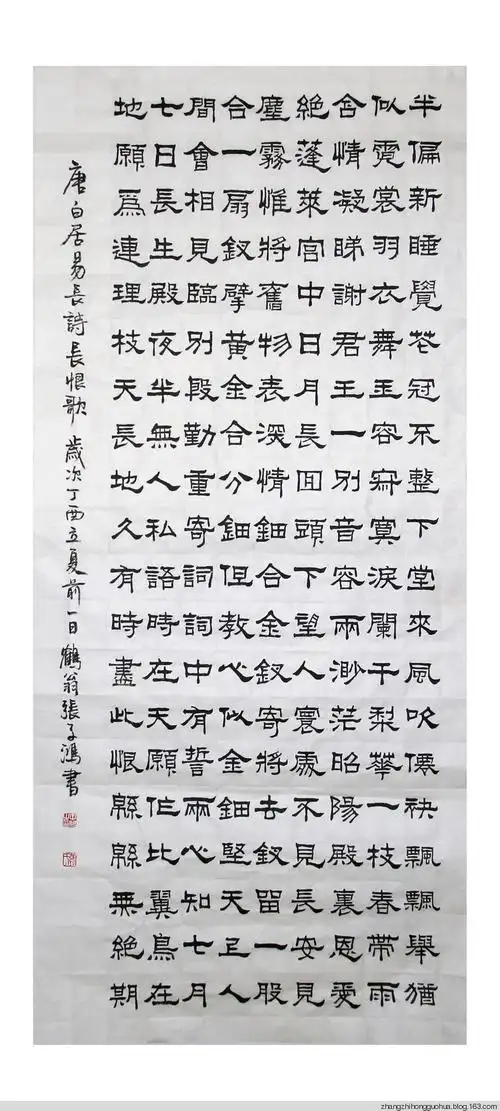 半偏新睡覺花冠不整下堂來風吹僊袂飄飄舉猶
似霓裳羽衣舞玉容寂寞淚闌干梨華一枝春帶雨
含情凝睇謝君王一別音容兩渺茫昭陽殿裏恩愛
絕蓬萊宮中日月長回頭下望人寰處不見長安見
塵霧惟將舊物表深情鈿合金釵寄將去釵留一股
合一扇釵擘黃金合分鈿但教心似金鈿堅天上人
間會相見臨別殷勤重寄詞詞中有誓兩心知七月
七日長生殿夜半無人私語時在天願作比翼鳥在
地願爲連理枝天長地久有時盡此恨緜緜無絕期
唐白居易長詩長恨歌 歲次丁酉立夏前一日鶴翁張之鴻書
zhangzhihongguohua.blog.163.com